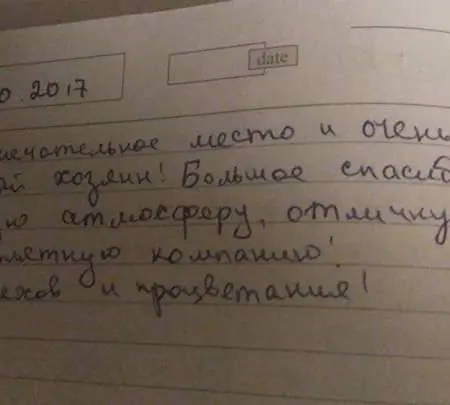 date
0.2017
ечательное место и очень
ай хозяин! Большое спасиб
ую атмосферу, отличну
летную компанию!
ехов и процветания!